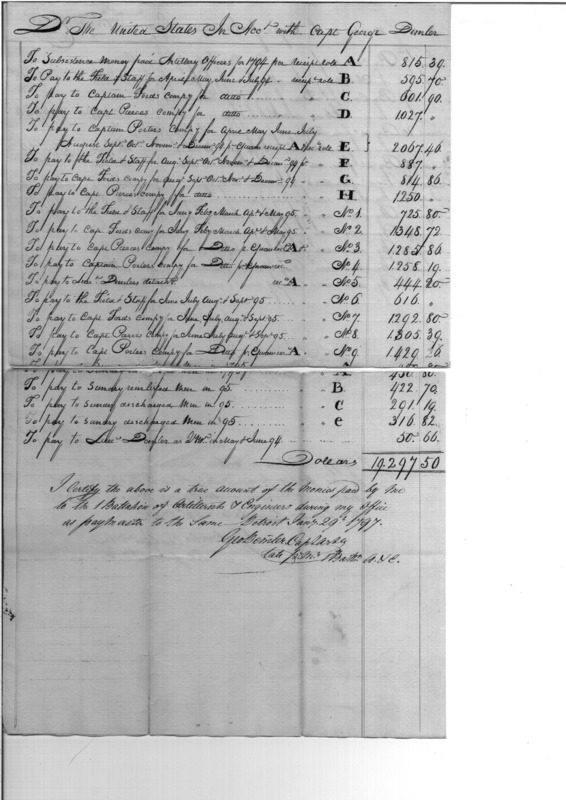 Dr The United States In Acct with Capt George Demler
To Subsistence Money paid Artillery Officers for 1794 per receipt role A 815.39.
To Pay to the Field & Staff for April May June & July 94 receipt role B 595.70.
To pay to Captain Fords compy for ditto " " C. 601.90.
To pay to Capt Peirces compy for ditto " " D. 1027. "
To pay to Captain Porters compy for April May June July
August Sept. Oct. Novr. & Decemr. 94 A & role E. } 2067.46.
To pay to the Field & Staff for Augt. Sept. Oct. Novemr & Decemr 94 " F. 887. "
To pay to Capt. Fords compy for Augt Sept. Oct. Novr. & Decemr 94 " " G. 814.86.
To pay to Capt. Peirces compy for ditto " " H 1250. "
To pay to the Field & Staff for Jany Feby March Apl. & May 95. " No. 1. 725.80.
To pay to Capt Fords compy for Jany Feby March Apl. & May 95 " No. 2. 1348.72
To pay to Capt Peirces Compy for Ditto A & No. 3. 1285.86
To pay to Captain Porters compy for Ditto No. 4. 1258.19.
To pay to Lieut. Demlers detacht. A. " No. 5. 444.20.
To pay to the Field & Staff for June July Augt. & Sept. 95 " " No. 6 616. "
To pay to Capt Fords Compy for June July, Augt. & Sept. 95. " " No. 7. 1292.80
To pay to Capt Peirces Compy for June July Augt & Sepr. 95 " No. 8. 1305.39.
To pay to Capt Porters Compy for Ditto A. " No. 9. 1429.
To pay to Sundry reinlisted Men in 95 " " B. 422.70.
To pay to Sunday discharged Men in 95 " " C 291.19.
To pay to Sunday discharged Men in 95 " " C 316.82.
To pay to Lieut. Demler as 2 Mr. in May & June 94 " " 50.66.
Dollars 19.297 50
I Certify the above is a true account of the Monies paid by me
to the 1 Battalion of Artillerists & Engineers during my office
as paymaster to the same Detroit Jany. 29th. 1797.
Geo Demler Capt
late 1 Battn. A & E.